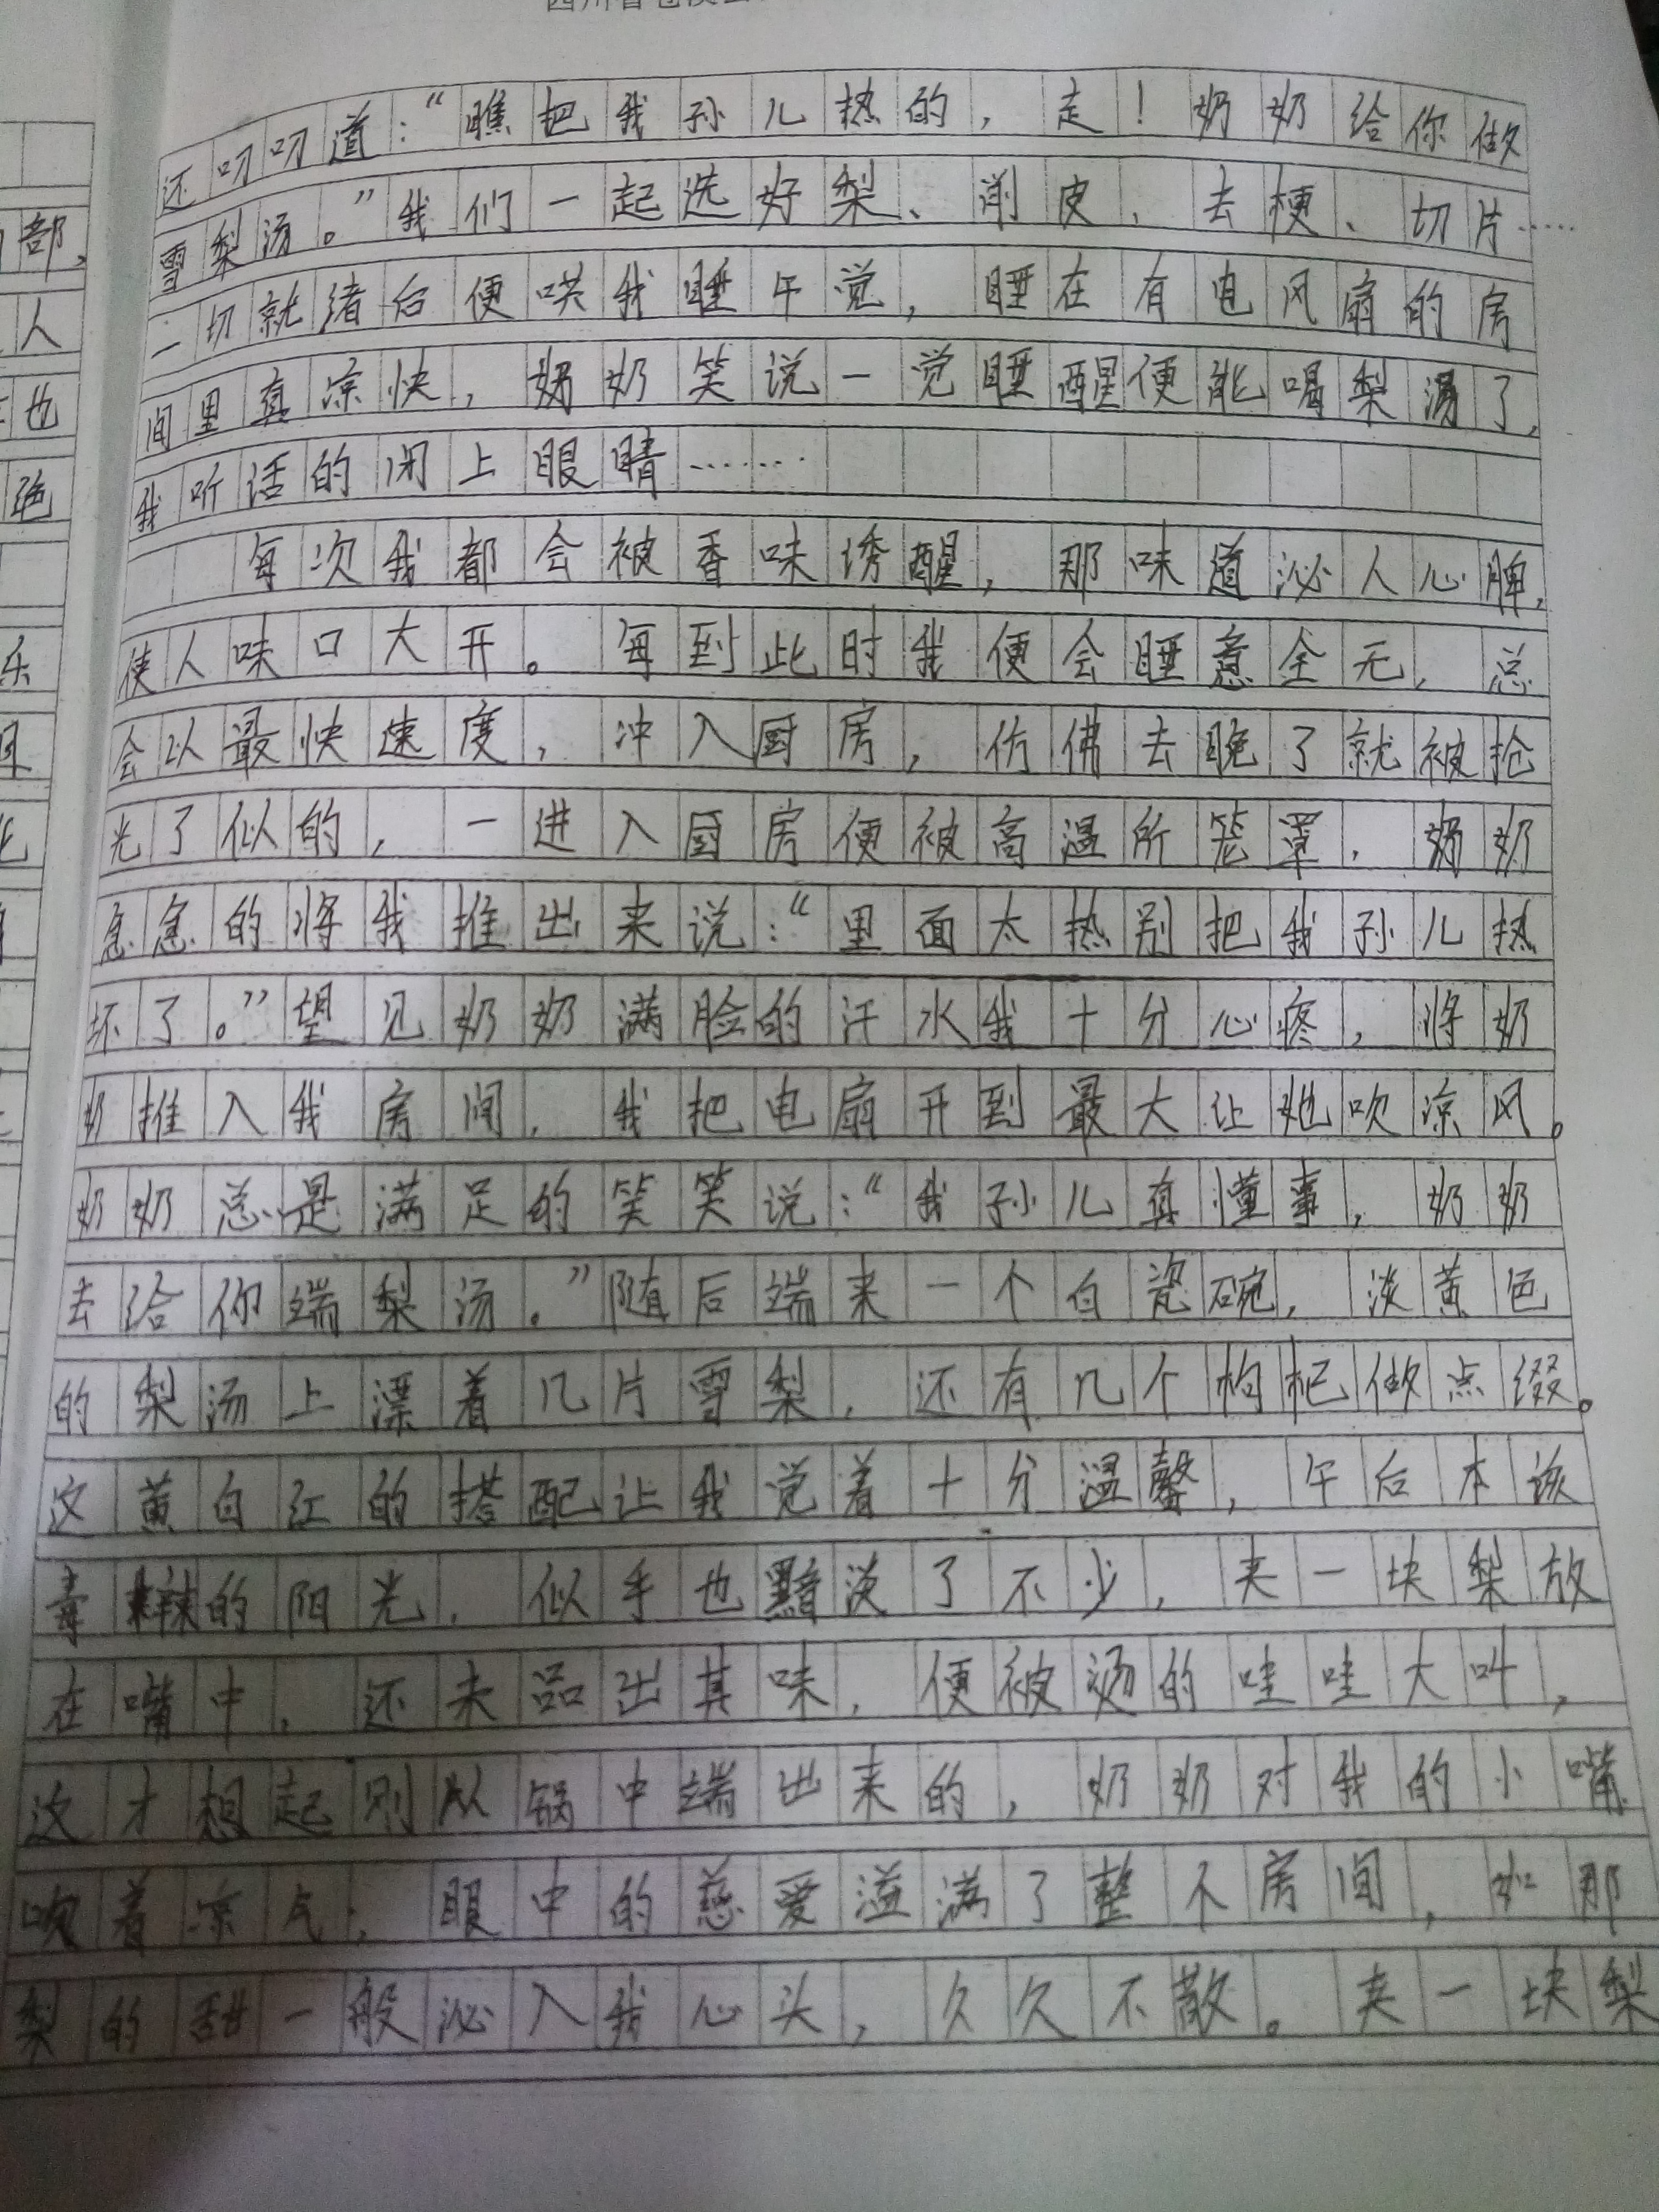 还叨叨道：“瞧把我孙儿热的，走！奶奶给你做
雪梨汤。”我们一起选好梨、削皮、去梗、切片……
一切就绪后便哄我睡午觉，睡在有电风扇的房
间里真凉快，奶奶笑说一觉睡醒便能喝梨汤了，
我听话的闭上眼睛……
每次我都会被香味诱醒，那味道沁人心脾，
使人味口大开。每到此时我便会睡意全无，总
会以最快速度，冲入厨房，仿佛去晚了就被抢
光了似的，一进入厨房便被高温所笼罩，奶奶
急急的将我推出来说：“里面太热别把我孙儿热
坏了。”望见奶奶满脸的汗水我十分心疼，将奶
奶推入我房间，我把电扇开到最大让她吹凉风。
奶奶总是满足的笑笑说：“我孙儿真懂事，奶奶
去给你端梨汤。”随后端来一个白瓷碗，淡黄色
的梨汤上漂着几片雪梨，还有几个枸杞做点缀。
这黄白红的搭配让我觉着十分温馨，午后本该
毒辣的阳光，似乎也黯淡了不少，夹一块梨放
在嘴中，还未品出其味，便被烫的哇哇大叫，
这才想起刚从锅中端出来的，奶奶对我的小嘴
吹着凉气，眼中的慈爱溢满了整个房间，如那
梨的甜一般沁入我心头，久久不散。夹一块梨
部，
人
也
绝
乐